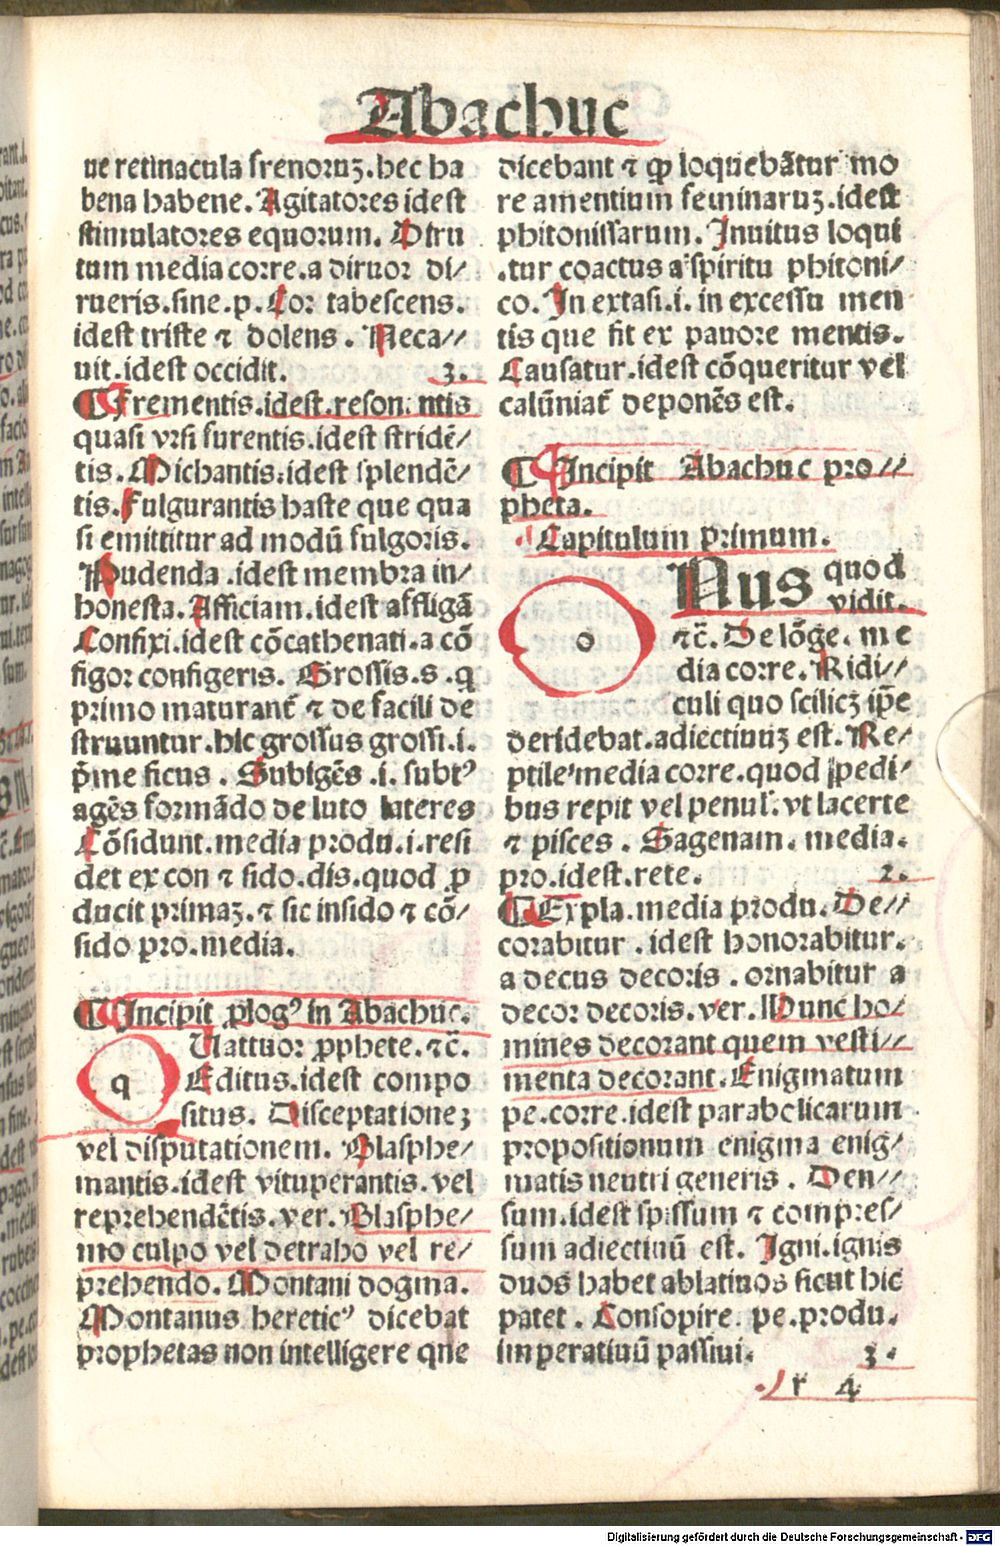 Abachuc
ue retinacula frenoruʒ.hec ha
bena habene. Agitatores idest
stimulatores equorum. Diru
tum media corre.a diruor di/
rueris.sine.p. Cor tabescens.
idest triste ⁊ dolens. Neca//
uit.idest occidit. 3.
¶ Frementis.idest.reson ntis
quasi vrsi furentis.idest stridē/
tis. Michantis.idest splendē/
tis. Fulgurantis haste que qua
si emittitur ad modū fulgoris.
Pudenda .idest membra in/
honesta. Afficiam.idest affligā
Confixi.idest cōcathenati.a cō
figor configeris. Grossis.s.q
primo maturant̄ ⁊ de facili de
struuntur.hic grossus grossi.i.
p̄me ficus . Subigēs .i. subtꝰ
agēs formādo de luto lateres
Cōsidunt.media produ.i.resi
det ex con ⁊ sido.dis.quod ꝓ
ducit primaʒ.⁊ sic insido ⁊ cō/
sido pro.media.
¶ Incipit ꝓlogꝰ in Abachuc.
q Uattuor ꝓphete.⁊c̄.
Editus.idest compo
situs. Disceptationeʒ
vel disputationem. Blasphe/
mantis.idest vituperantis.vel
reprehendētis.ver. Blasphe/
mo culpo vel detraho vel re/
prehendo. Montani dogma.
Montanus hereticꝰ dicebat
prophetas non intelligere que
dicebant ⁊ ꝙ loquebātur mo
re amentium feminaruʒ.idest
phitonissarum. Inuitus loqui
.tur coactus a spiritu phitoni/
co. In extasi.i. in excessu men
tis que fit ex pauore mentis.
Causatur.idest cōqueritur vel
calūniat̄ deponēs est.
¶ Incipit Abachuc pro//
pheta.
Capitulum primum.
o Nus quod
vidit.
⁊c̄. De lōge. me
dia corre. Ridi//
culi quo scilicʒ ip̄e
deridebat.adiectiuuʒ est. Re/
ptile media corre.quod pedi/
bus repit vel penul̄.vt lacerte
⁊ pisces . Sagenam. media.
pro.idest.rete. 2.
¶ Expla.media produ. De//
corabitur .idest honorabitur.
a decus decoris . ornabitur a
decor decoris.ver. Nunc ho/
mines decorant quem vesti//
menta decorant. Enigmatum
pe.corre.idest parabolicarum
propositionum enigma enig/
matis neutri generis . Den//
sum.idest spissum ⁊ compres/
sum adiectiuū est. Igni.ignis
duos habet ablatiuos sicut hic
patet . Consopire. pe.produ.
imperatiuū passiui. 3.
r 4
Digitalisierung gefördert durch die Deutsche Forschungsgemeinschaft - DFG